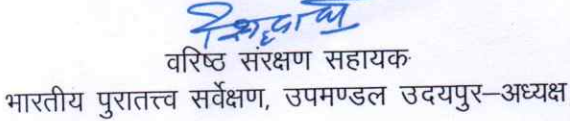 वरिष्ठ संरक्षण सहायक
भारतीय पुरातत्त्व सर्वेक्षण, उपमण्डल उदयपुर–अध्यक्ष